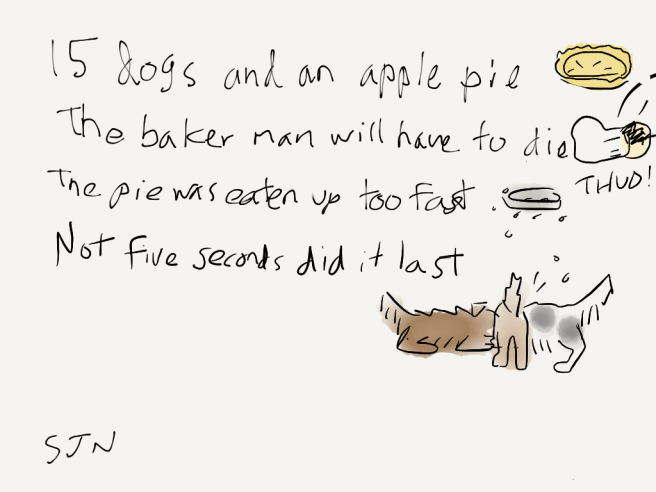 15 dogs and an apple pie
The baker man will have to die
THUD!
The pie was eaten up too fast.
Not five seconds did it last
SJN